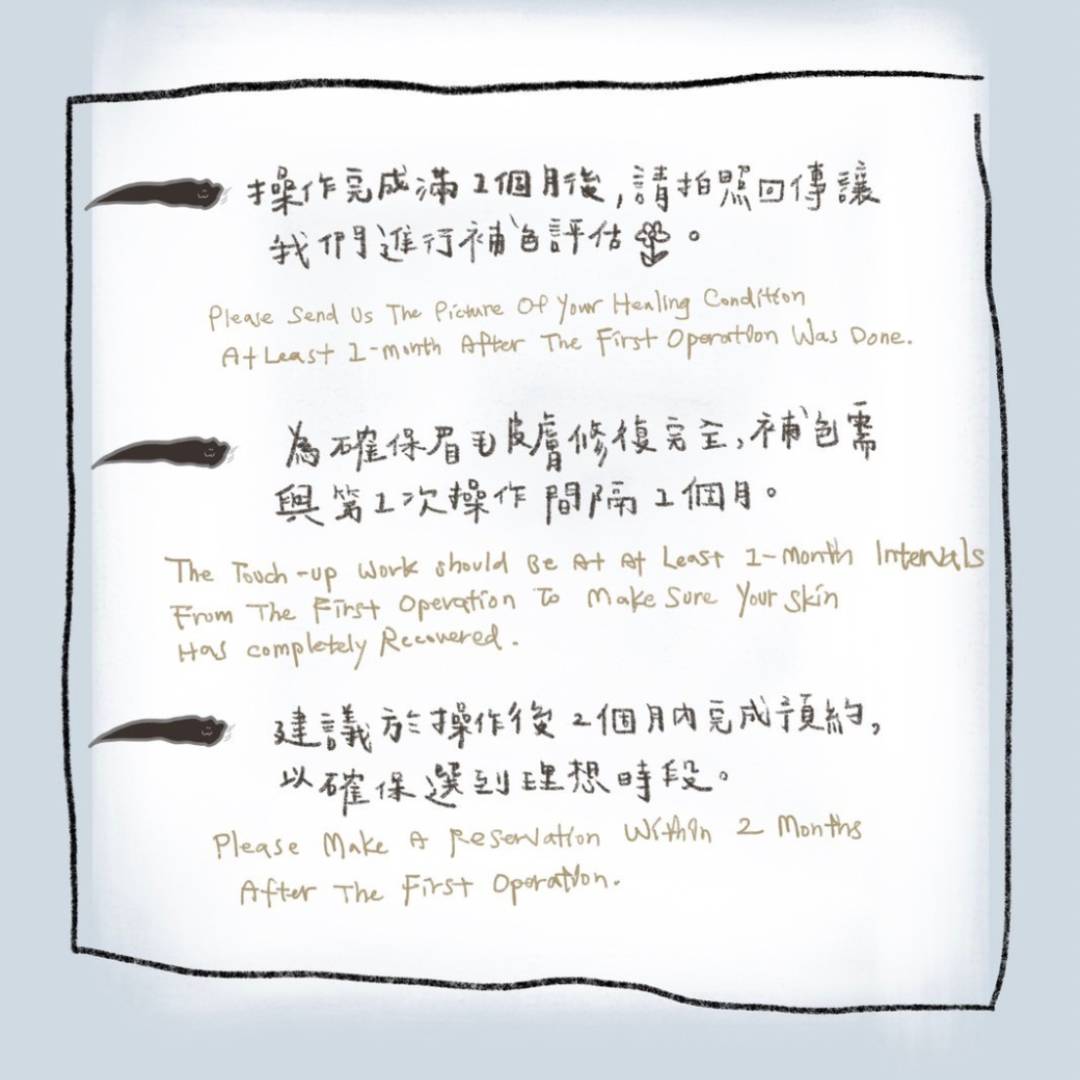 操作完成滿1個月後,請拍照回傳讓
我們進行補色評估。
Please Send Us The Picture Of Your Healing Condition
At Least 1-month After The First Operation Was Done.
為確保眉毛皮膚修復完全,補色需
與第1次操作間隔1個月。
The Touch-up Work should Be At At Least 1-Month Intervals
From The First Operation To Make Sure Your Skin
Has completely Recovered.
建議於操作後2個月內完成預約,
以確保選到理想時段。
Please Make A Reservation Within 2 Months
After The First Operation.